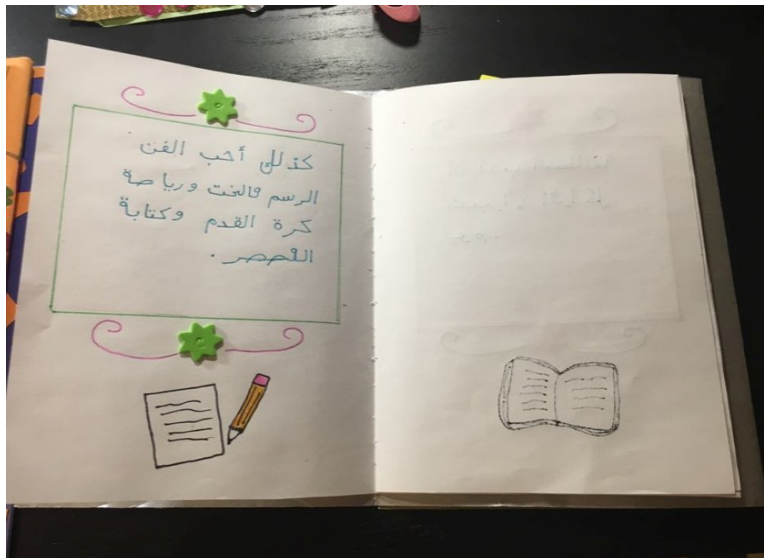 كذلك أحب الفن
الرسم والنحت ورياضة
كرة القدم وكتابة
القصص.